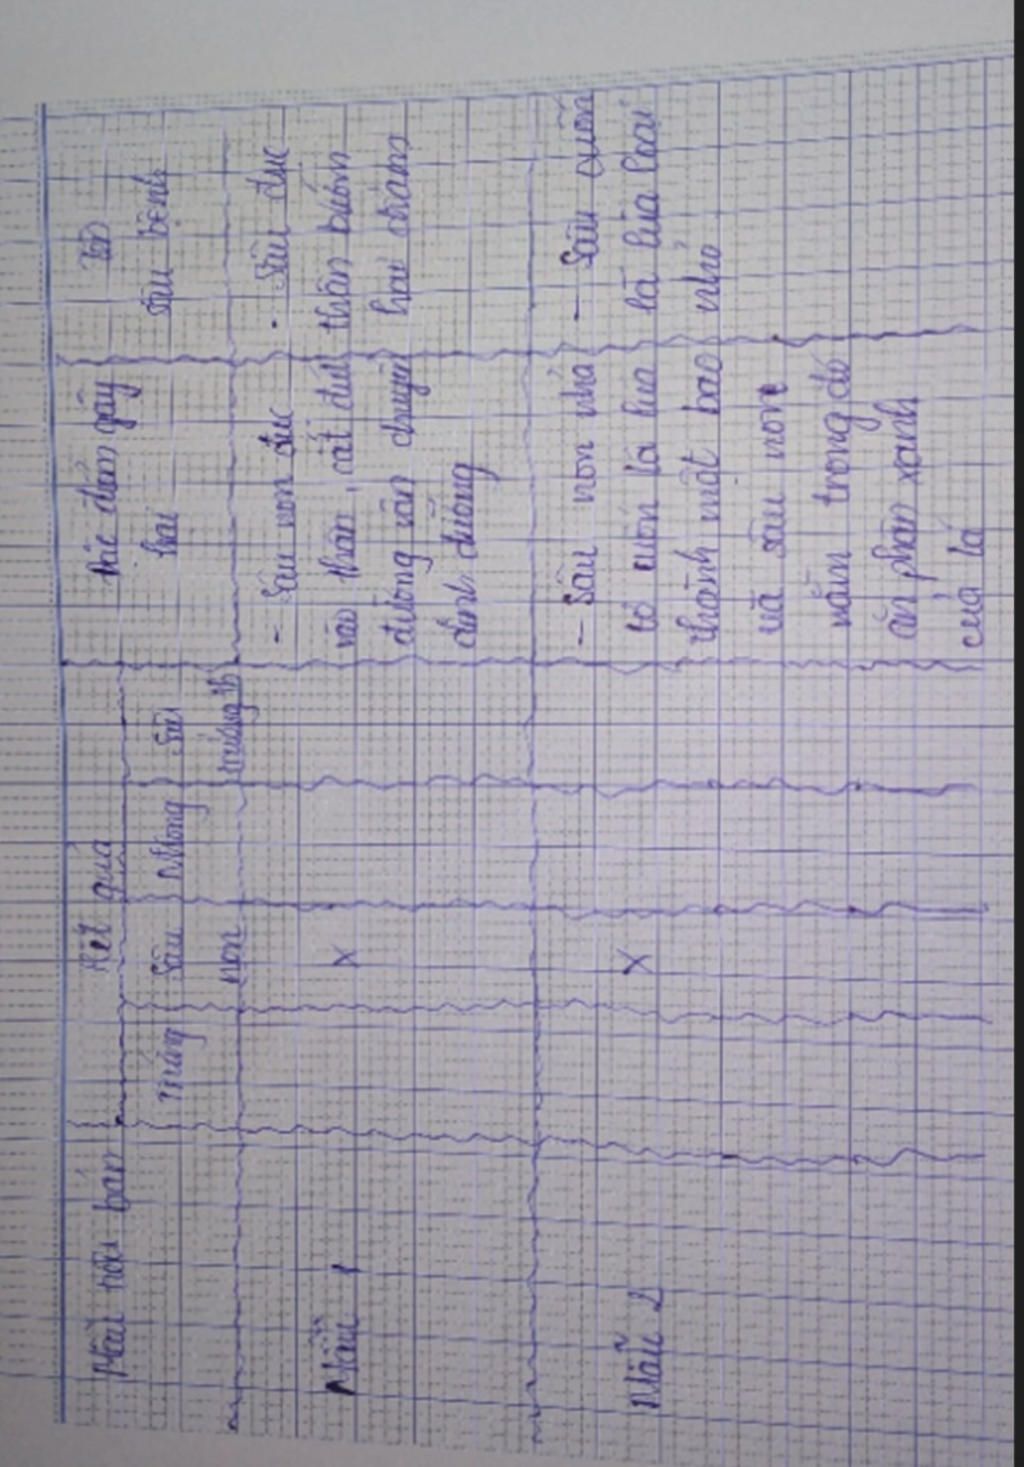 Mẫu tiêu bản
Kết quả
Đặc điểm gây
hại
Tên
sâu bệnh
Trứng
Sâu
non
Nhộng
Sâu
trưởng th
Mẫu 1
X
- Sâu non đục
vào thân, cắt đứt
đường vận chuyển
dinh dưỡng
. Sâu đục
thân bướm
hai chấm
Mẫu 2
X
- Sâu non nhả
tơ cuốn lá lúa
thành một bao
và sâu non
nằm trong đó
ăn phần xanh
của lá
- Sâu cuốn
lá lúa loại
nhỏ